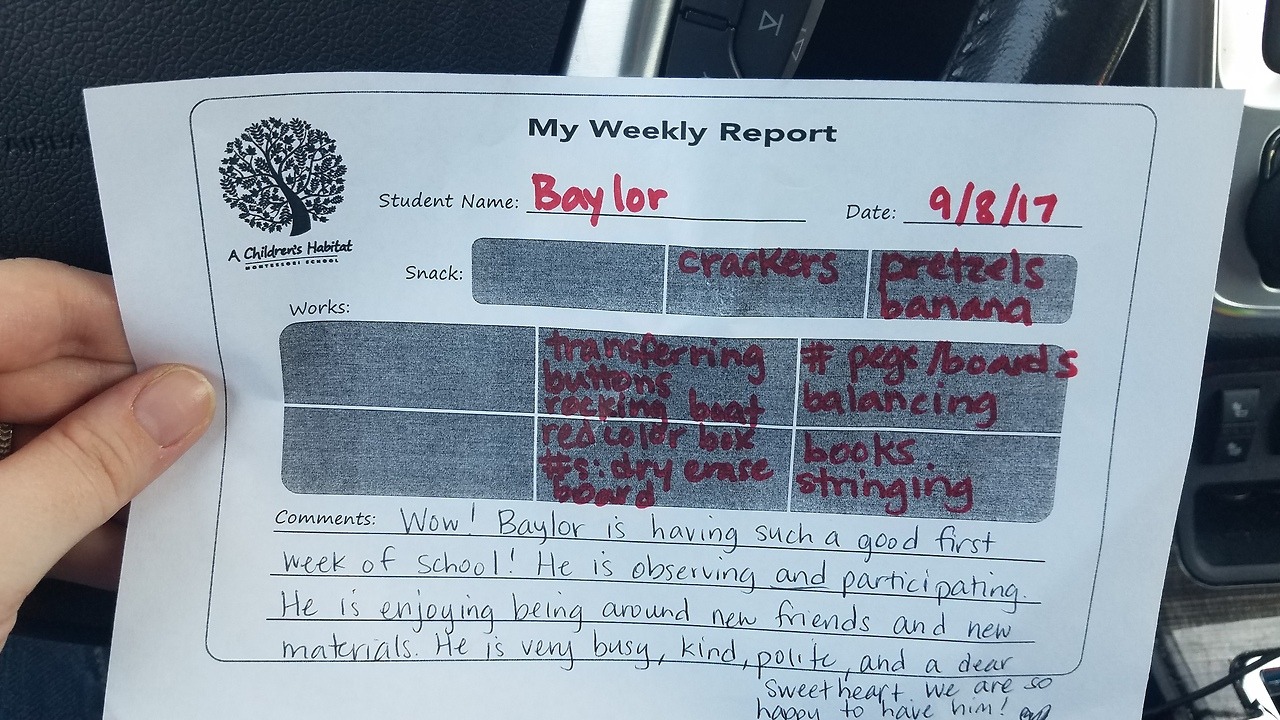 My Weekly Report
Student Name: Baylor
Date: 9/8/17
A Children's Habitat
MONTESSORI SCHOOL
Snack:
crackers
pretzels
banana
Works:
transferring
buttons
rocking boat
# pegs/boards
balancing
red color box
#s: dry erase
board
books
stringing
Comments: Wow! Baylor is having such a good first
week of school! He is observing and participating.
He is enjoying being around new friends and new
materials. He is very busy, kind, polite, and a dear
sweetheart. We are so
happy to have him!